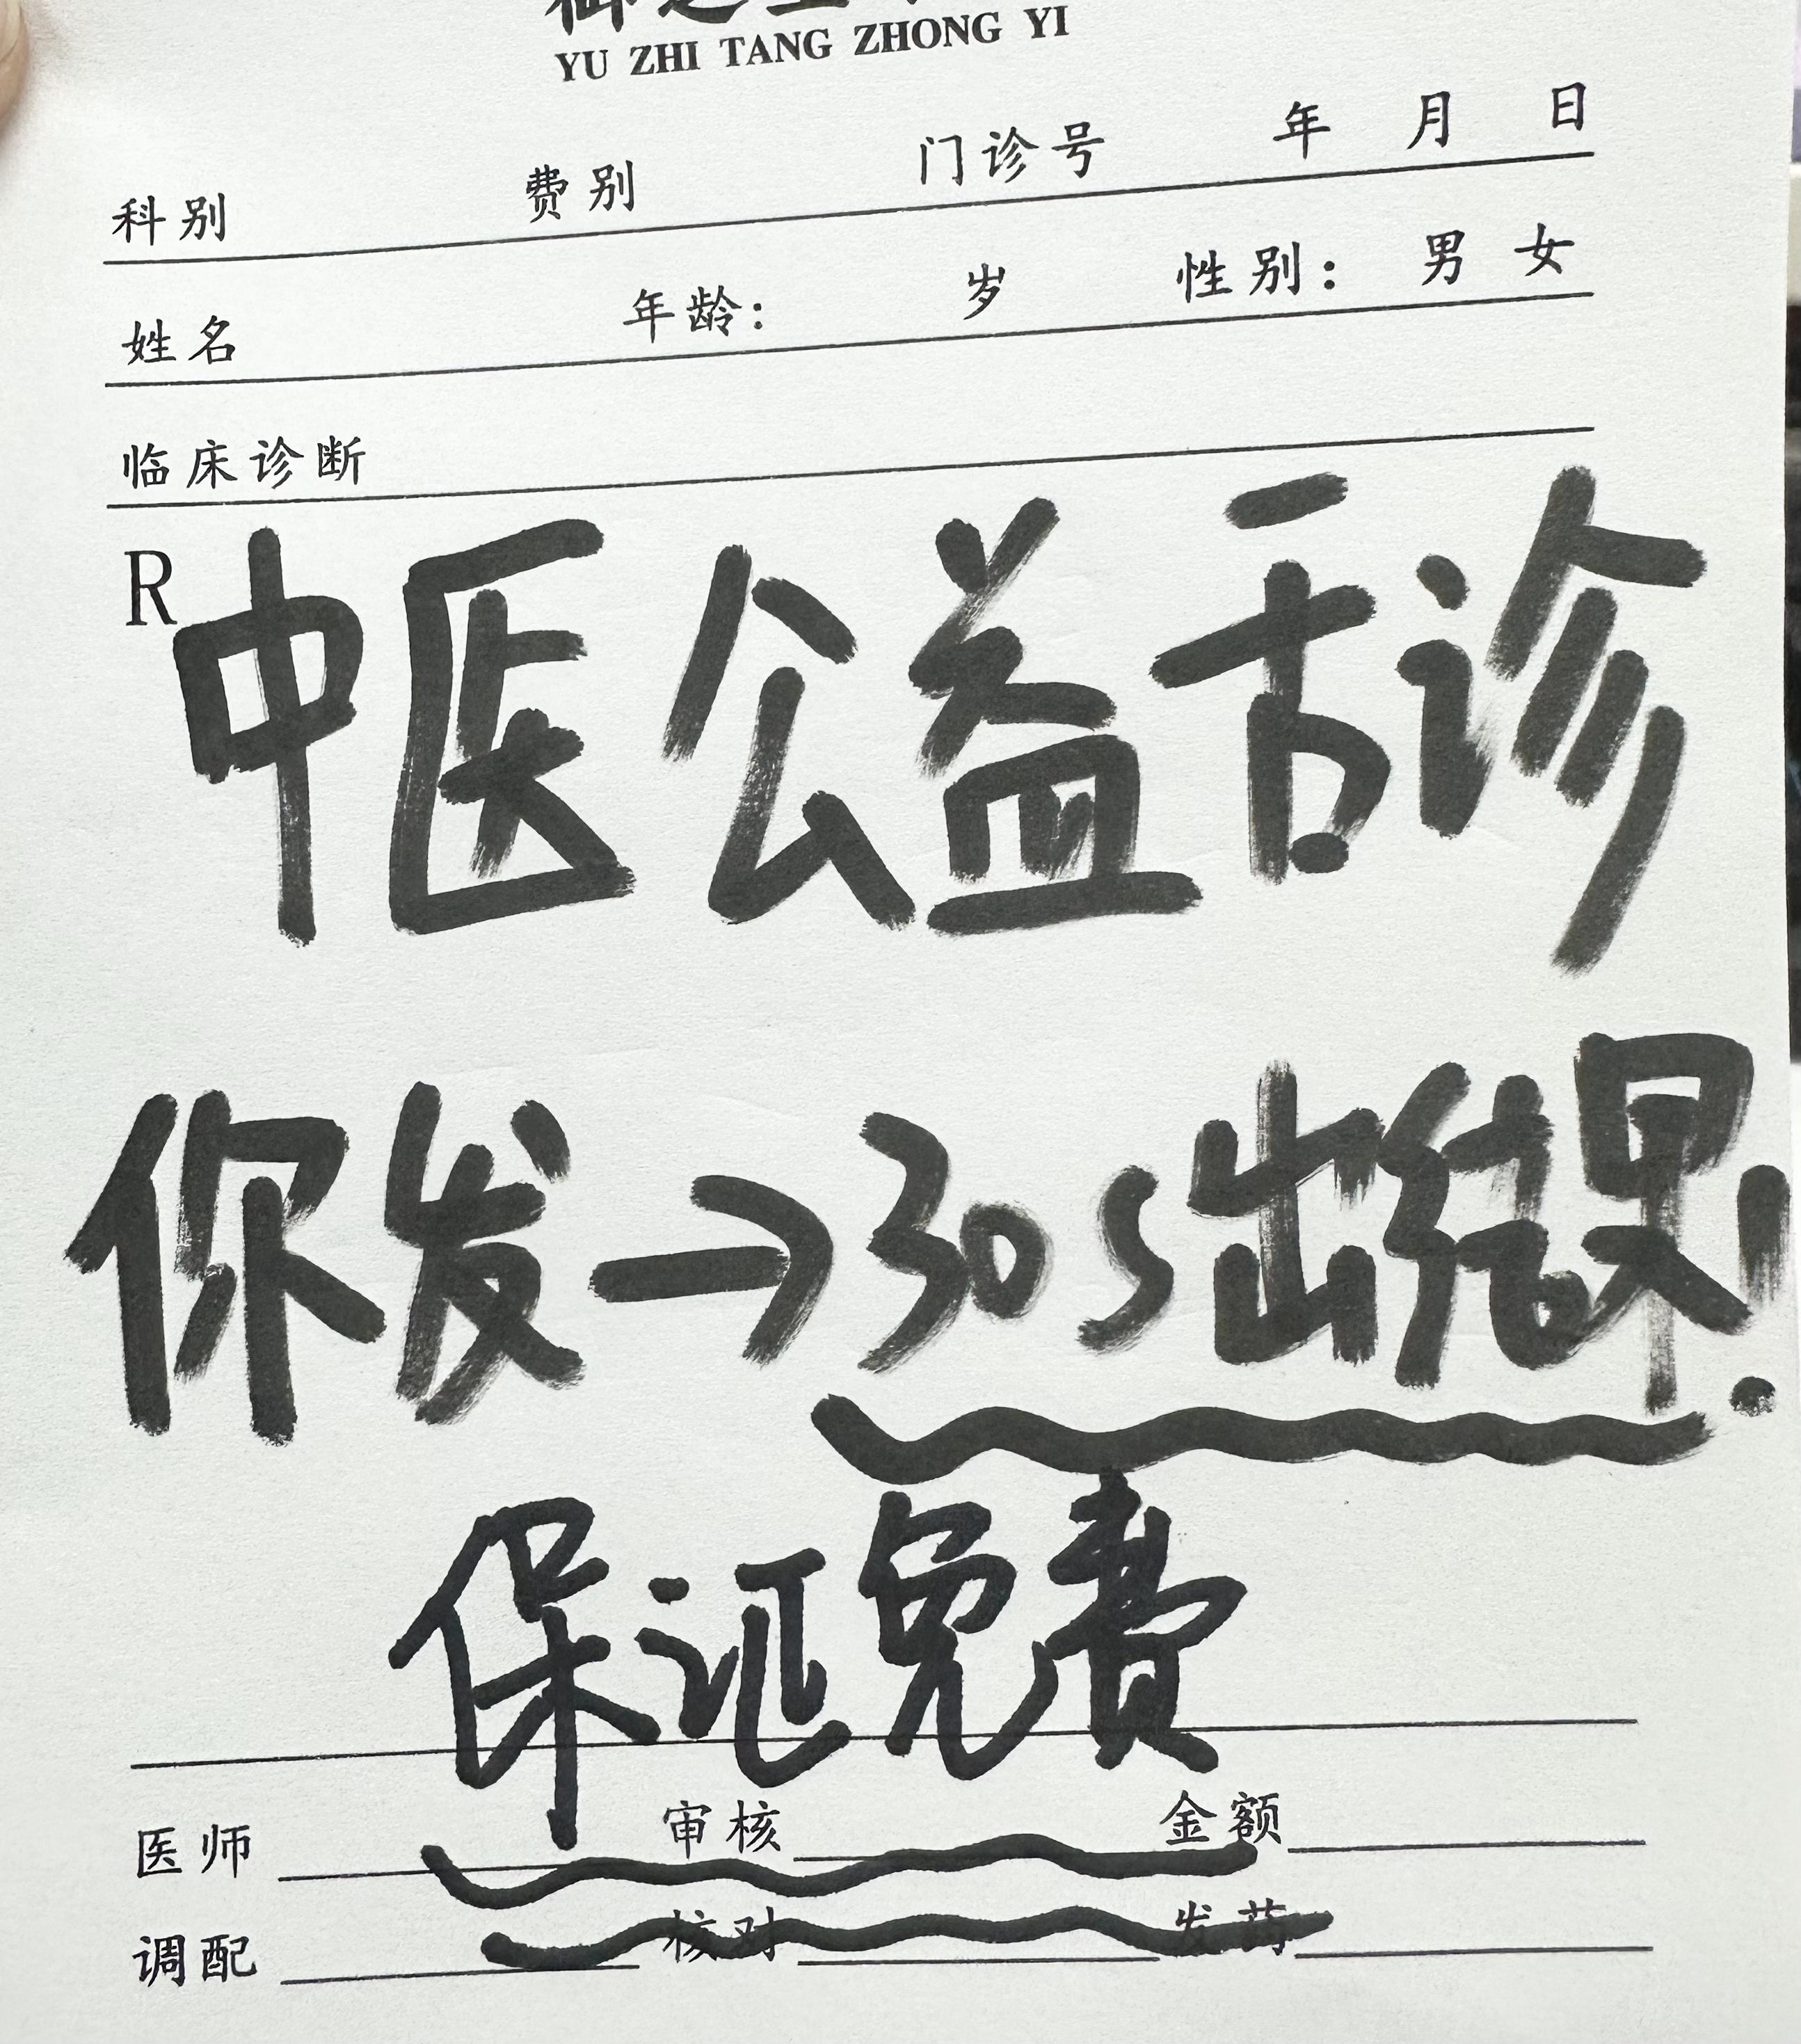 YU ZHI TANG ZHONG YI
科别 费别 门诊号 年 月 日
姓名 年龄: 岁 性别: 男 女
临床诊断
R
中医公益舌诊
你发→30s出结果!
保证免费
医师 审核 金额
调配 核对 发药